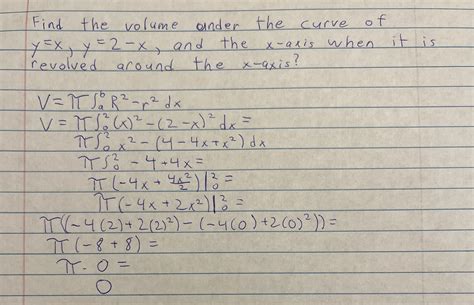 Find the volume under the curve of
y=x, y=2-x, and the x-axis when it is
revolved around the x-axis?
V=π∫ₐᵇR²-r² dx
V=π∫₀²(x)²-(2-x)² dx=
π∫₀² x²-(4-4x+x²)dx
π∫₀² -4+4x=
π(-4x+4x²/2)|₀²=
π(-4x+2x²)|₀²=
π((-4(2)+2(2)²)-(-4(0)+2(0)²))=
π(-8+8)=
π·0=
0